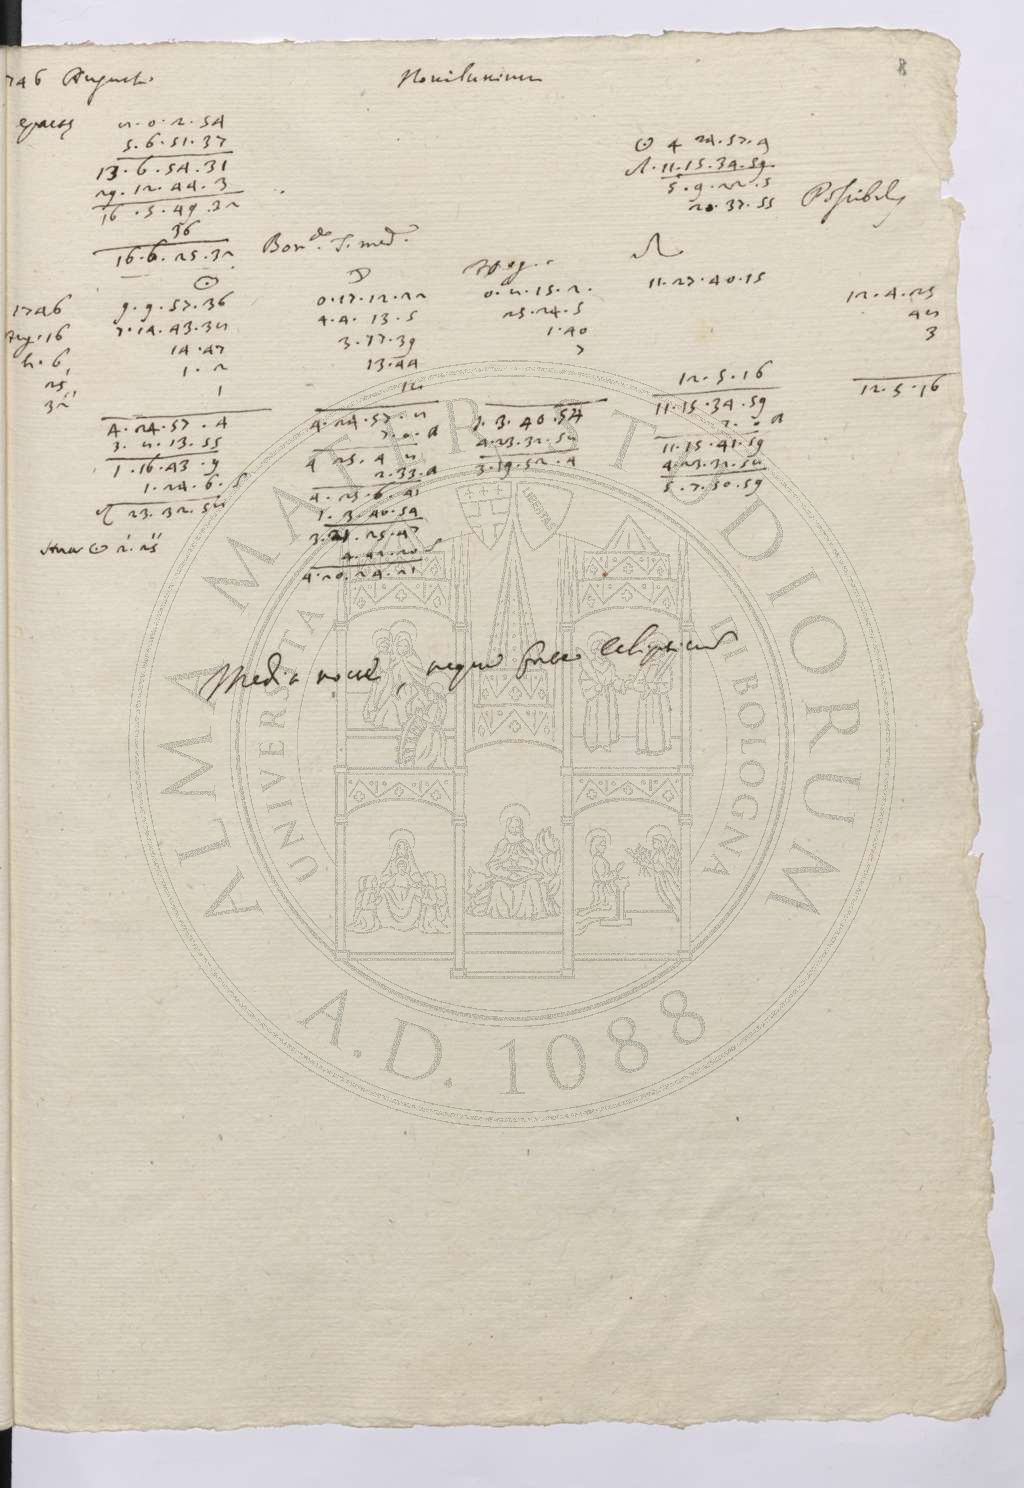 8
1746 Augusti. Novilunium
epactæ 2.0.2.54
5.6.51.37
13.6.54.31
29.12.44.3
16.5.49.32
36
16.6.25.32
☉ 4 24.57.9
11.15.34.59
5.9.22.5
20.37.55
Possibilis
Bon. T. med.
☉ ☽ Apog. ☊
1746 9.9.57.36 0.17.12.22 11.27.40.15 12.4.25
Aug. 16 7.14.43.32 4.4.13.5 25.24.5 42
h. 6, 14.47 3.17.39 1.40 3
25, 1.2 13.44 7
32 1 12 12.5.16 12.5.16
4.24.57.4 4.24.57.2 1.3.40.54 11.15.34.59
3.2.13.55 7.0. 4.23.32.52 7.0
1.16.43.9 4 25.4 2 3.19.52.4 11.15.41.59
1.24.6. 2.33. 4.23.32.52
23.32.52 4.25.6.41 5.7.50.59
1.3.40.54
3.21.25.47
4.42.20
4.20.24.21
☉ 2.25
Media nocte, neque fuere eclipticæ
ALMA MATER STUDIORUM
UNIVERSITA DI BOLOGNA
LIBERTAS
A.D. 1088